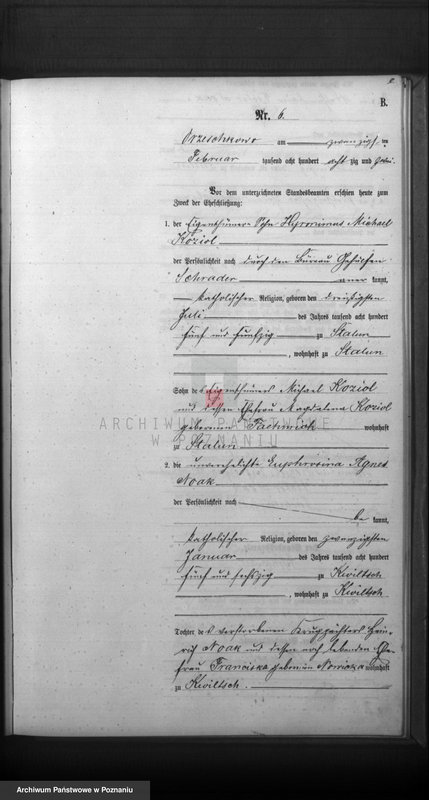 B.
Nr. 6.
Orzeschkowo am zwanzigsten
Februar tausend acht hundert acht zig und
Vor dem unterzeichneten Standesbeamten erschien heute zum
Zweck der Eheschließung:
1. der Eigenthümer Sohn Hyronimus Michael
Koziol
der Persönlichkeit nach durch den Bureau Gehülfen
Schrader aner kannt,
katholischer Religion, geboren den dreißigsten
Juli des Jahres tausend acht hundert
fünf und fünfzig zu Stalun
, wohnhaft zu Stalun
Sohn des Eigenthümers Michael Koziol
und dessen Ehefrau Magdalena Koziol
geborenen wohnhaft
zu Stalun
ARCHIWUM PAŃSTWOWE
W POZNANIU
2. die unverehelichte Euphrosina Agnes
Noak
der Persönlichkeit nach
be kannt,
katholischer Religion, geboren den zwanzigsten
Januar des Jahres tausend acht hundert
fünf und sechszig zu Kwiltsch
, wohnhaft zu Kwiltsch
Tochter des verstorbenen Krugpächters Hein-
rich Noak und dessen noch lebenden Ehe
frau Franciska geborenen Nowicka wohnhaft
zu Kwiltsch.
Archiwum Państwowe w Poznaniu